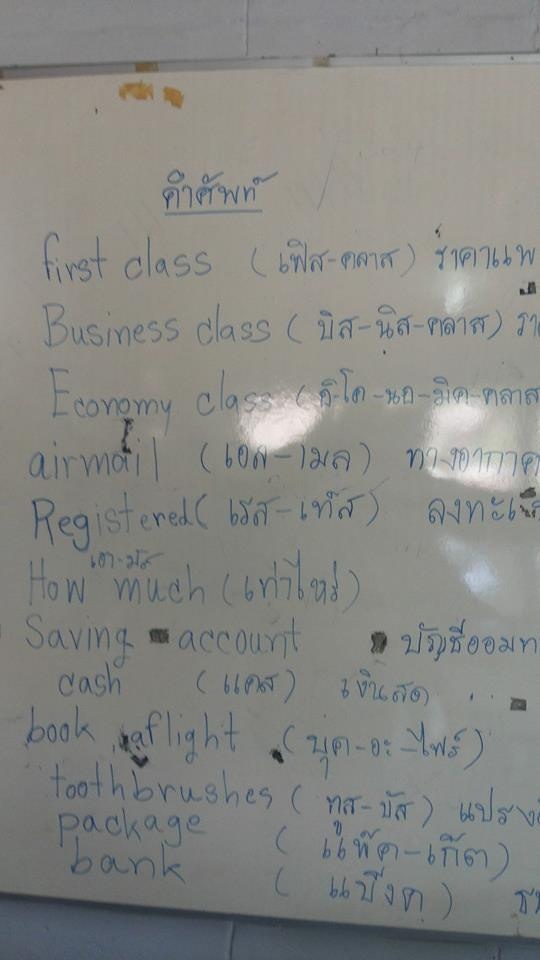 คำศัพท์
first class (เฟิส-คลาส) ราคาแพ
Business class (บิส-นิส-คลาส) รา
Economy class (อิ-โค-นอ-มิค-คลาส
airmail (เอล-เมล) ทางอากาศ
Registered (เรส-เท้ส) ลงทะเ
เฮา-มัช
How much (เท่าไหร่)
Saving account บัญชีออมท
cash (แคส) เงินสด
book a flight (บุค-อะ-ไฟร์)
toothbrushes (ทูส-บัส) แปรง
package (แพ๊ค-เก๊ต)
bank (แบ๊งค) ธน